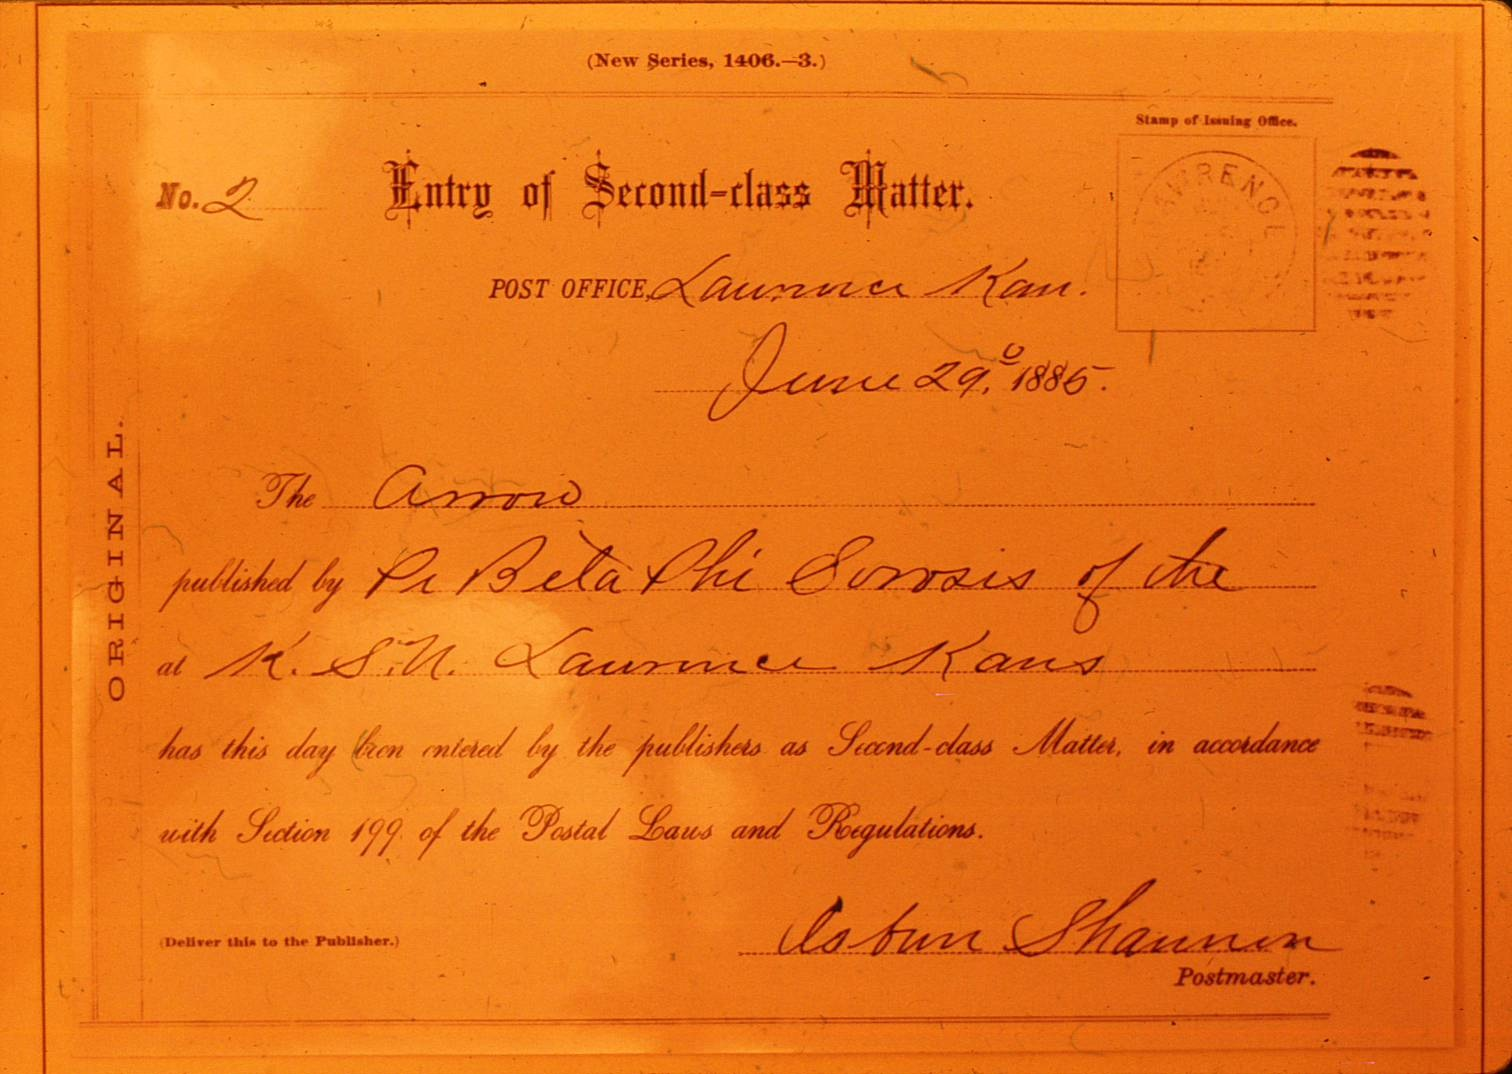 (New Series, 1406.—3.)
Stamp of Issuing Office.
LAWRENCE
No. 2
Entry of Second-class Matter.
POST OFFICE, Lawrence Kan.
June 29, 1885.
ORIGINAL.
The Arrow
published by Pi Beta Phi Sorosis of the
at K.S.U. Lawrence Kans
has this day been entered by the publishers as Second-class Matter, in accordance
with Section 199 of the Postal Laws and Regulations.
(Deliver this to the Publisher.)
Osbun Shannon
Postmaster.